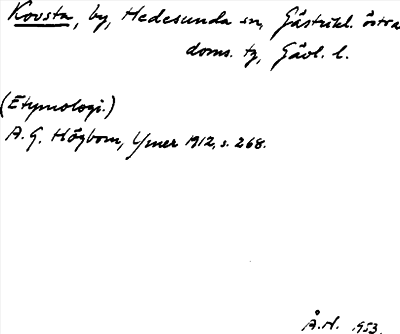 Kovsta, by, Hedesunda sn, Gästrikl. östra
doms. tg, Gävl. l.
(Etymologi.)
A. G. Högbom, Ymer 1912, s. 268.
Å.H. 1953.